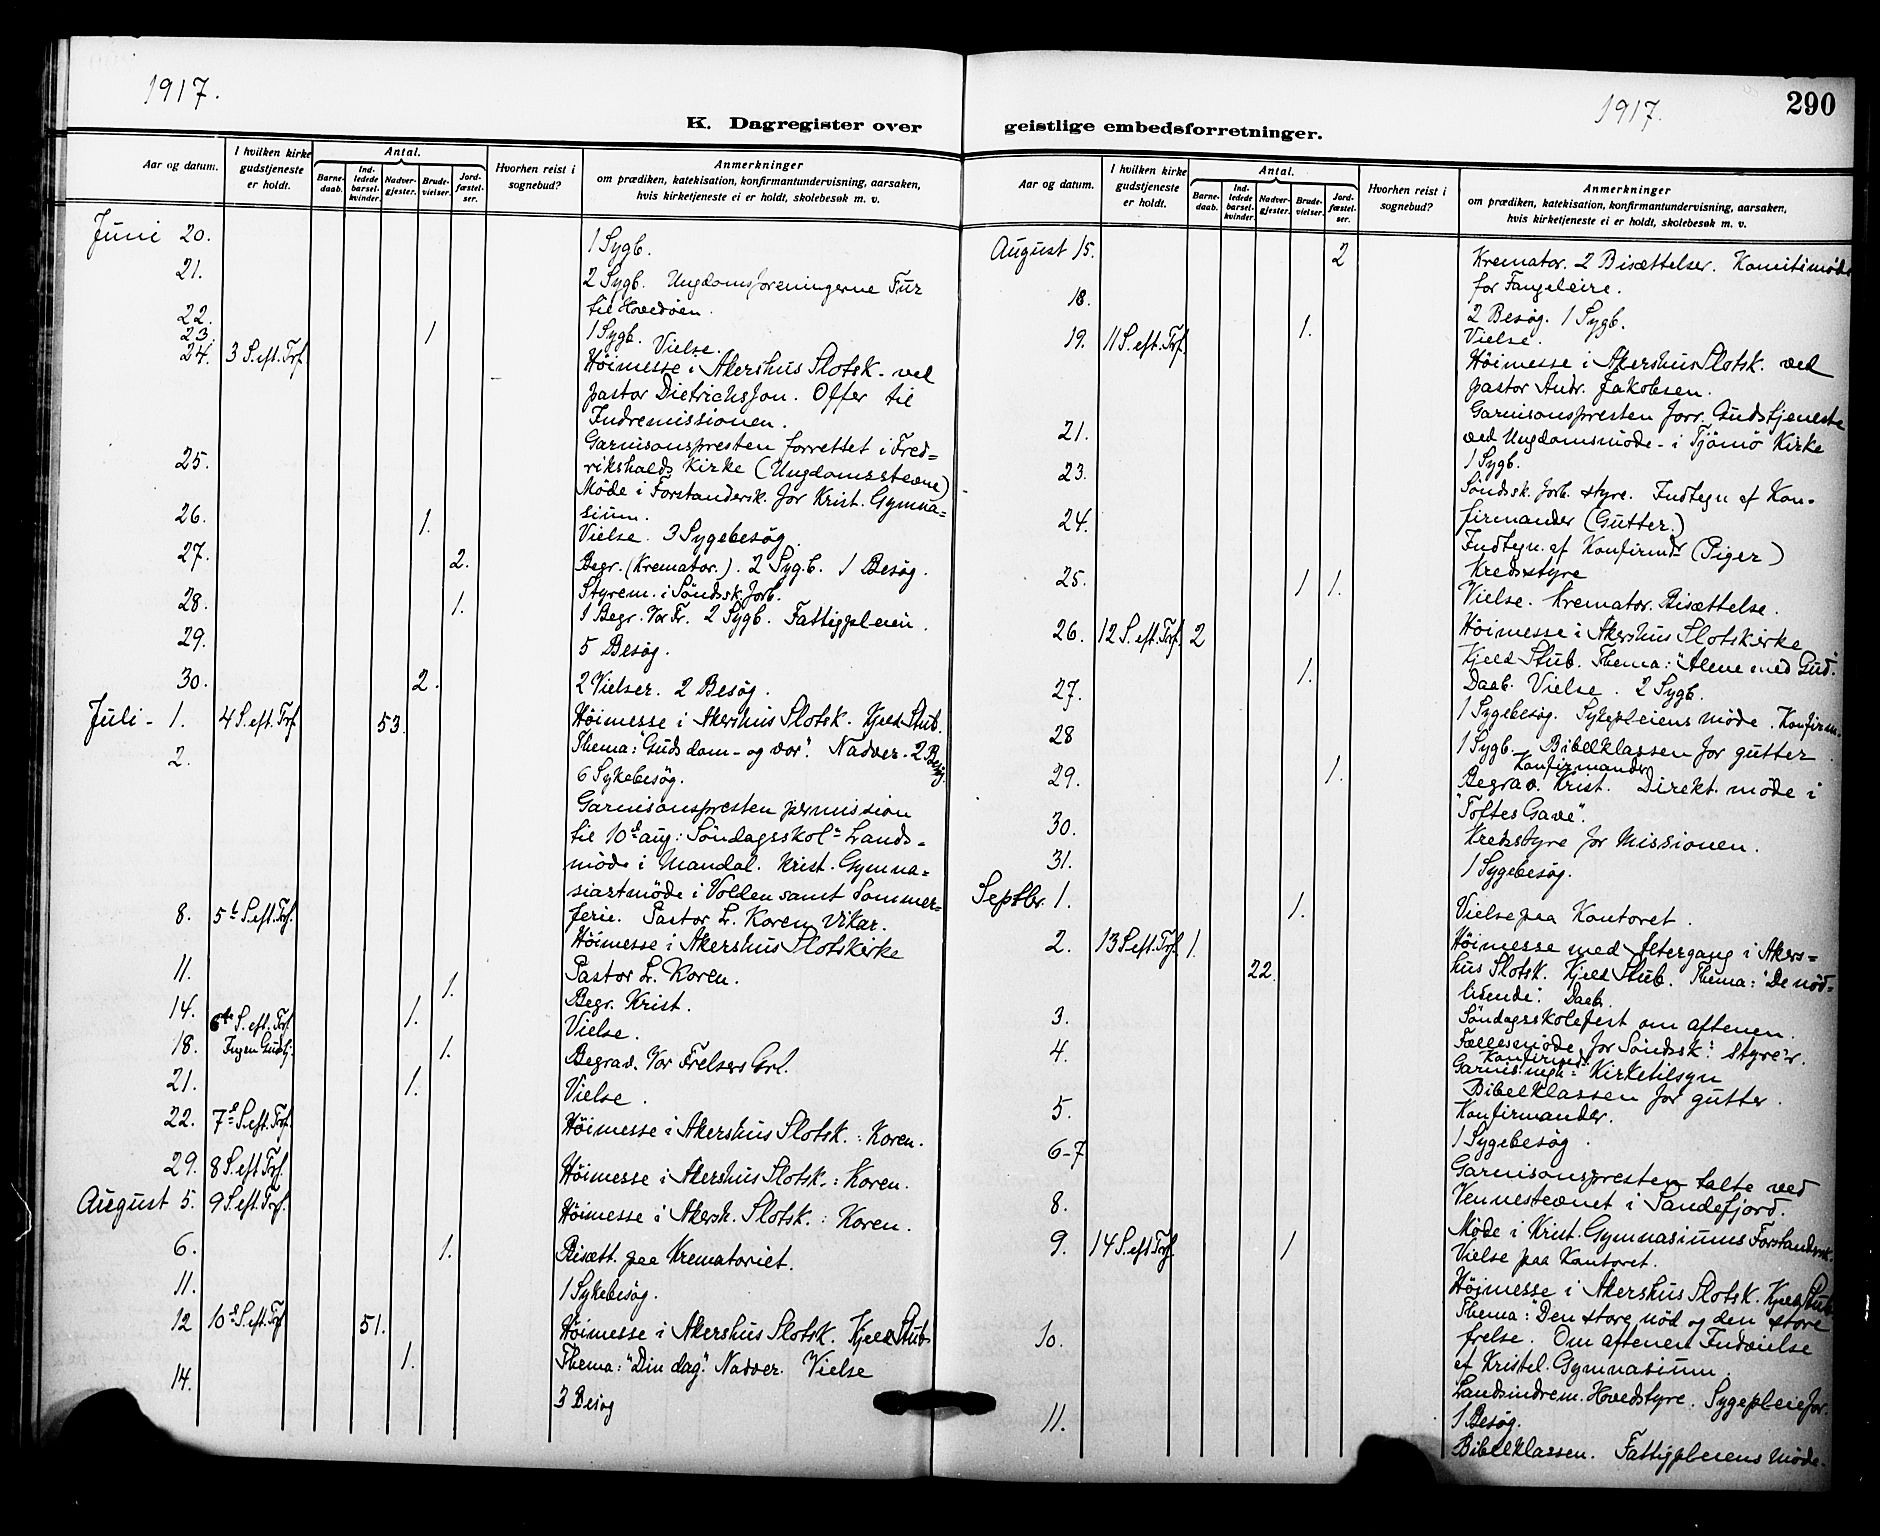 1917.
K. Dagregister over
Aar og datum. I hvilken kirke gudstjeneste er holdt. Antal. Barnedaab. Indledede barselkvinder. Nadvergjester. Brudevielser. Jordfæstelser. Hvorhen reist i sognebud? Anmerkninger om prædiken, katekisation, konfirmantundervisning, aarsaken, hvis kirketjeneste ei er holdt, skolebesøk m. v.
Juni 20. 1 Sygb.
21. 2 Sygb. Ungdomsforeningerne Fur
til Hovedøen.
22. 1 Sygb.
23. 1 Vielse.
24. 3 S. eft. Trf. Høimesse i Akershus Slotsk. ved
pastor Dietrichson. Offer til
Indremissionen.
Garnisonspresten forrettet i Fred=
rikshalds Kirke (Ungdomsstevne)
25. Møde i Forstandersk. for Krist. Gymna=
sium.
26. 1. Vielse. 3 Sygebesøg.
27. 2. Begr. (Kremator.). 2 Syg.b. 1 Besøg.
Styrem. i Søndssk. forb.
28. 1. 1 Begr. Vor Fr. 2 Sygb. Fattigpleien.
29. 5 Besøg.
30. 2. 2 Vielser. 2 Besøg.
Juli - 1. 4 S. eft. Trf. 53. Høimesse i Akershus Slotsk. Kjeld Stub.
Thema: "Guds dom - og vor". Nadver. 2 Besøg.
2. 6 Sykebesøg.
Garnisonspresten permission
til 10d aug: Søndagsskol: Lands=
møde i Mandal. Krist. Gymna=
siastmøde i Volden samt Sommer=
ferie. Pastor L. Koren Vikar.
8. 5t S. eft. Trf. Høimesse i Akershus Slotskirke
Pastor L. Koren.
11. 1. Begr. Krist.
14. 1. Vielse.
6te S. eft. Trf.
Ingen Gudstj.
18. 1. Begrav. Vor Frelsers Grl.
21. 1. Vielse.
22. 7d S. eft. Trf. Høimesse i Akershus Slotsk.: Koren.
29. 8 S. eft Trf. Høimesse i Akershus Slotsk.: Koren.
August 5. 9 S. eft. Trf. Høimesse i Akersh. Slotsk.: Koren.
6. 1. Bisætt. paa Krematoriet.
11. 1 Sykebesøg.
12 10d S. eft. Trf 51. Høimesse i Akershus Slotsk. Kjeld Stub
1. Thema: "Din dag". Nadver. Vielse
14. 3 Besøg
1917. 290
geistlige embedsforretninger.
Aar og datum. I hvilken kirke gudstjeneste er holdt. Antal. Barnedaab. Indledede barselkvinder. Nadvergjester. Brudevielser. Jordfæstelser. Hvorhen reist i sognebud? Anmerkninger om prædiken, katekisation, konfirmantundervisning, aarsaken, hvis kirketjeneste ei er holdt, skolebesøk m. v.
August 15. 2 Kremator. 2 Bisættelser. Komitémøde
for Fangeleire.
18. 2 Besøg. 1 Sygb.
1. Vielse.
19. 11 S. eft. Trf. Høimesse i Akershus Slotsk. ved
pastor Andr. Jakobsen.
Garnisonspresten forr. Gudstjeneste
ved Ungdomsmøde - i Tjømø Kirke
21. 1 Sygb.
23. Søndssk. forb. styre. Indtegn. af Kon-
firmander (Gutter.)
24. Indtegn. af Konfirmdr (Piger)
Kredsstyre
25. 1 1. Vielse. Kremator. Bisættelse.
26. 12 S. eft. Trf. 2 Høimesse i Akershus Slotskirke
Kjeld Stub. Thema: "Alene med Gud".
1. Daab. Vielse. 2 Sygb.
27. 1 Sygebesøg. Sykepleiens møde. Konfirm.
28 1 Sygb. Bibelklassen for gutter.
Konfirmander
29. 1. Begrav. Krist. Direkt. møde i
"Toftes Gave".
30. Kredsstyre for Missionen.
31. 1 Sygebesøg.
Septbr. 1. 1. Vielse paa Kontoret.
2. 13 S. eft. Trf. 1. 22. Høimesse med Altergang i Akers=
hus Slotsk. Kjeld Stub. Thema: "De nød=
lidende". Daab.
3. Søndagsskolefest om aftenen.
4. Fællesmøde for Søndssk: styre'r.
Konfirmdr.
Garnis.mgh: Kirketilsyn
Bibelklassen for gutter.
5. Konfirmander.
1 Sygebesøg.
6-7 Garnisonspresten talte ved
Vennestevnet i Sandefjord.
8. Møde i Krist. Gymnasiums Forstandersk.
1 Vielse paa Kontoret.
9. 14 S. eft Trf. Høimesse i Akershus Slotsk. Kjeld Stub
Thema: "Den store nød og den store
frelse. Om aftenen Indvielse
af Kristel. Gymnasium.
10. Landsindrem. Hovedstyre. Sygepleiefor.
1 Besøg.
11. Bibelklassen. Fattigpleiens Møde.